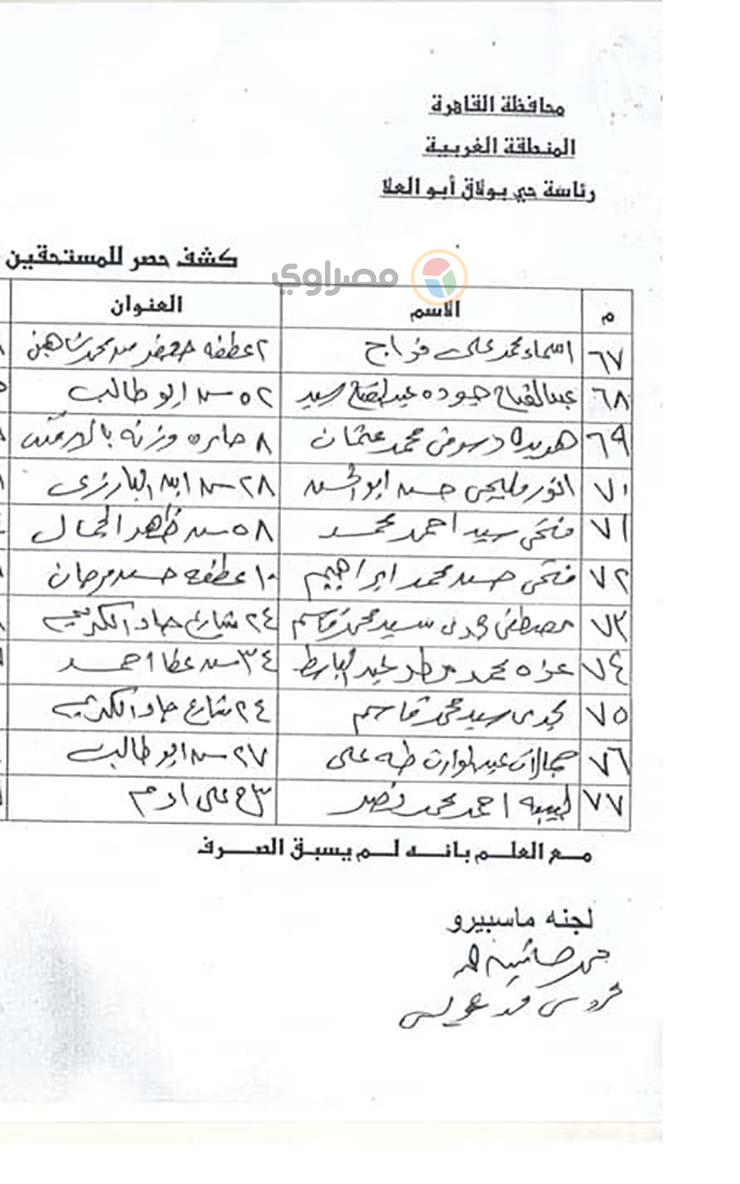 محافظة القاهرة
المنطقة الغربية
رئاسة حي بولاق أبو العلا
كشف حصر للمستحقين
مصراوي
م الاسم العنوان
٦٧ اسماء محمد على فراج ٢ عطفه جعفر محمد شاهين
٦٨ عبدالفتاح جوده عبدالفتاح سيد ٥٢ ش ابو طالب
٦٩ هويدا دسوقى محمد عثمان ٨ حاره وزنه
٧٠ انور مليجى حسن ابو الحسن ٢٨ ش ابن البارزى
٧١ فتحى سيد احمد محمد ٥٨ ش ظهر الجمال
٧٢ فتحى حسن محمد ابراهيم ١٠ عطفه حسن مرجان
٧٣ مصطفى مجدى سيد محمد قاسم ٢٤ شارع جاد الكريم
٧٤ عزه محمد مطر عبد الباسط ٣٤ ش عطا احمد
٧٥ مجدى سيد محمد قاسم ٢٤ شارع جاد الكريم
٧٦ جمالات عبدالوارث طه على ٢٧ ش ابو طالب
٧٧ لبيبه احمد محمد نصر ٣ ح على ادم
مع العلم بانه لم يسبق الصرف
لجنه ماسبيرو